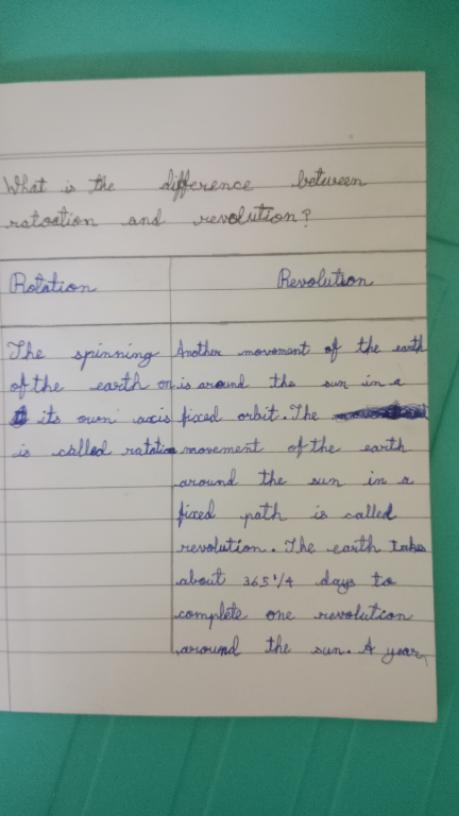 What is the difference between
rotoation and revolution?
Rotation
The spinning
of the earth on
its own axis
is called rotation
Revolution
Another movement of the earth
is around the sun in a
fixed orbit. The
movement of the earth
around the sun in a
fixed path is called
revolution. The earth takes
about 365 1/4 days to
complete one revolution
around the sun. A year,